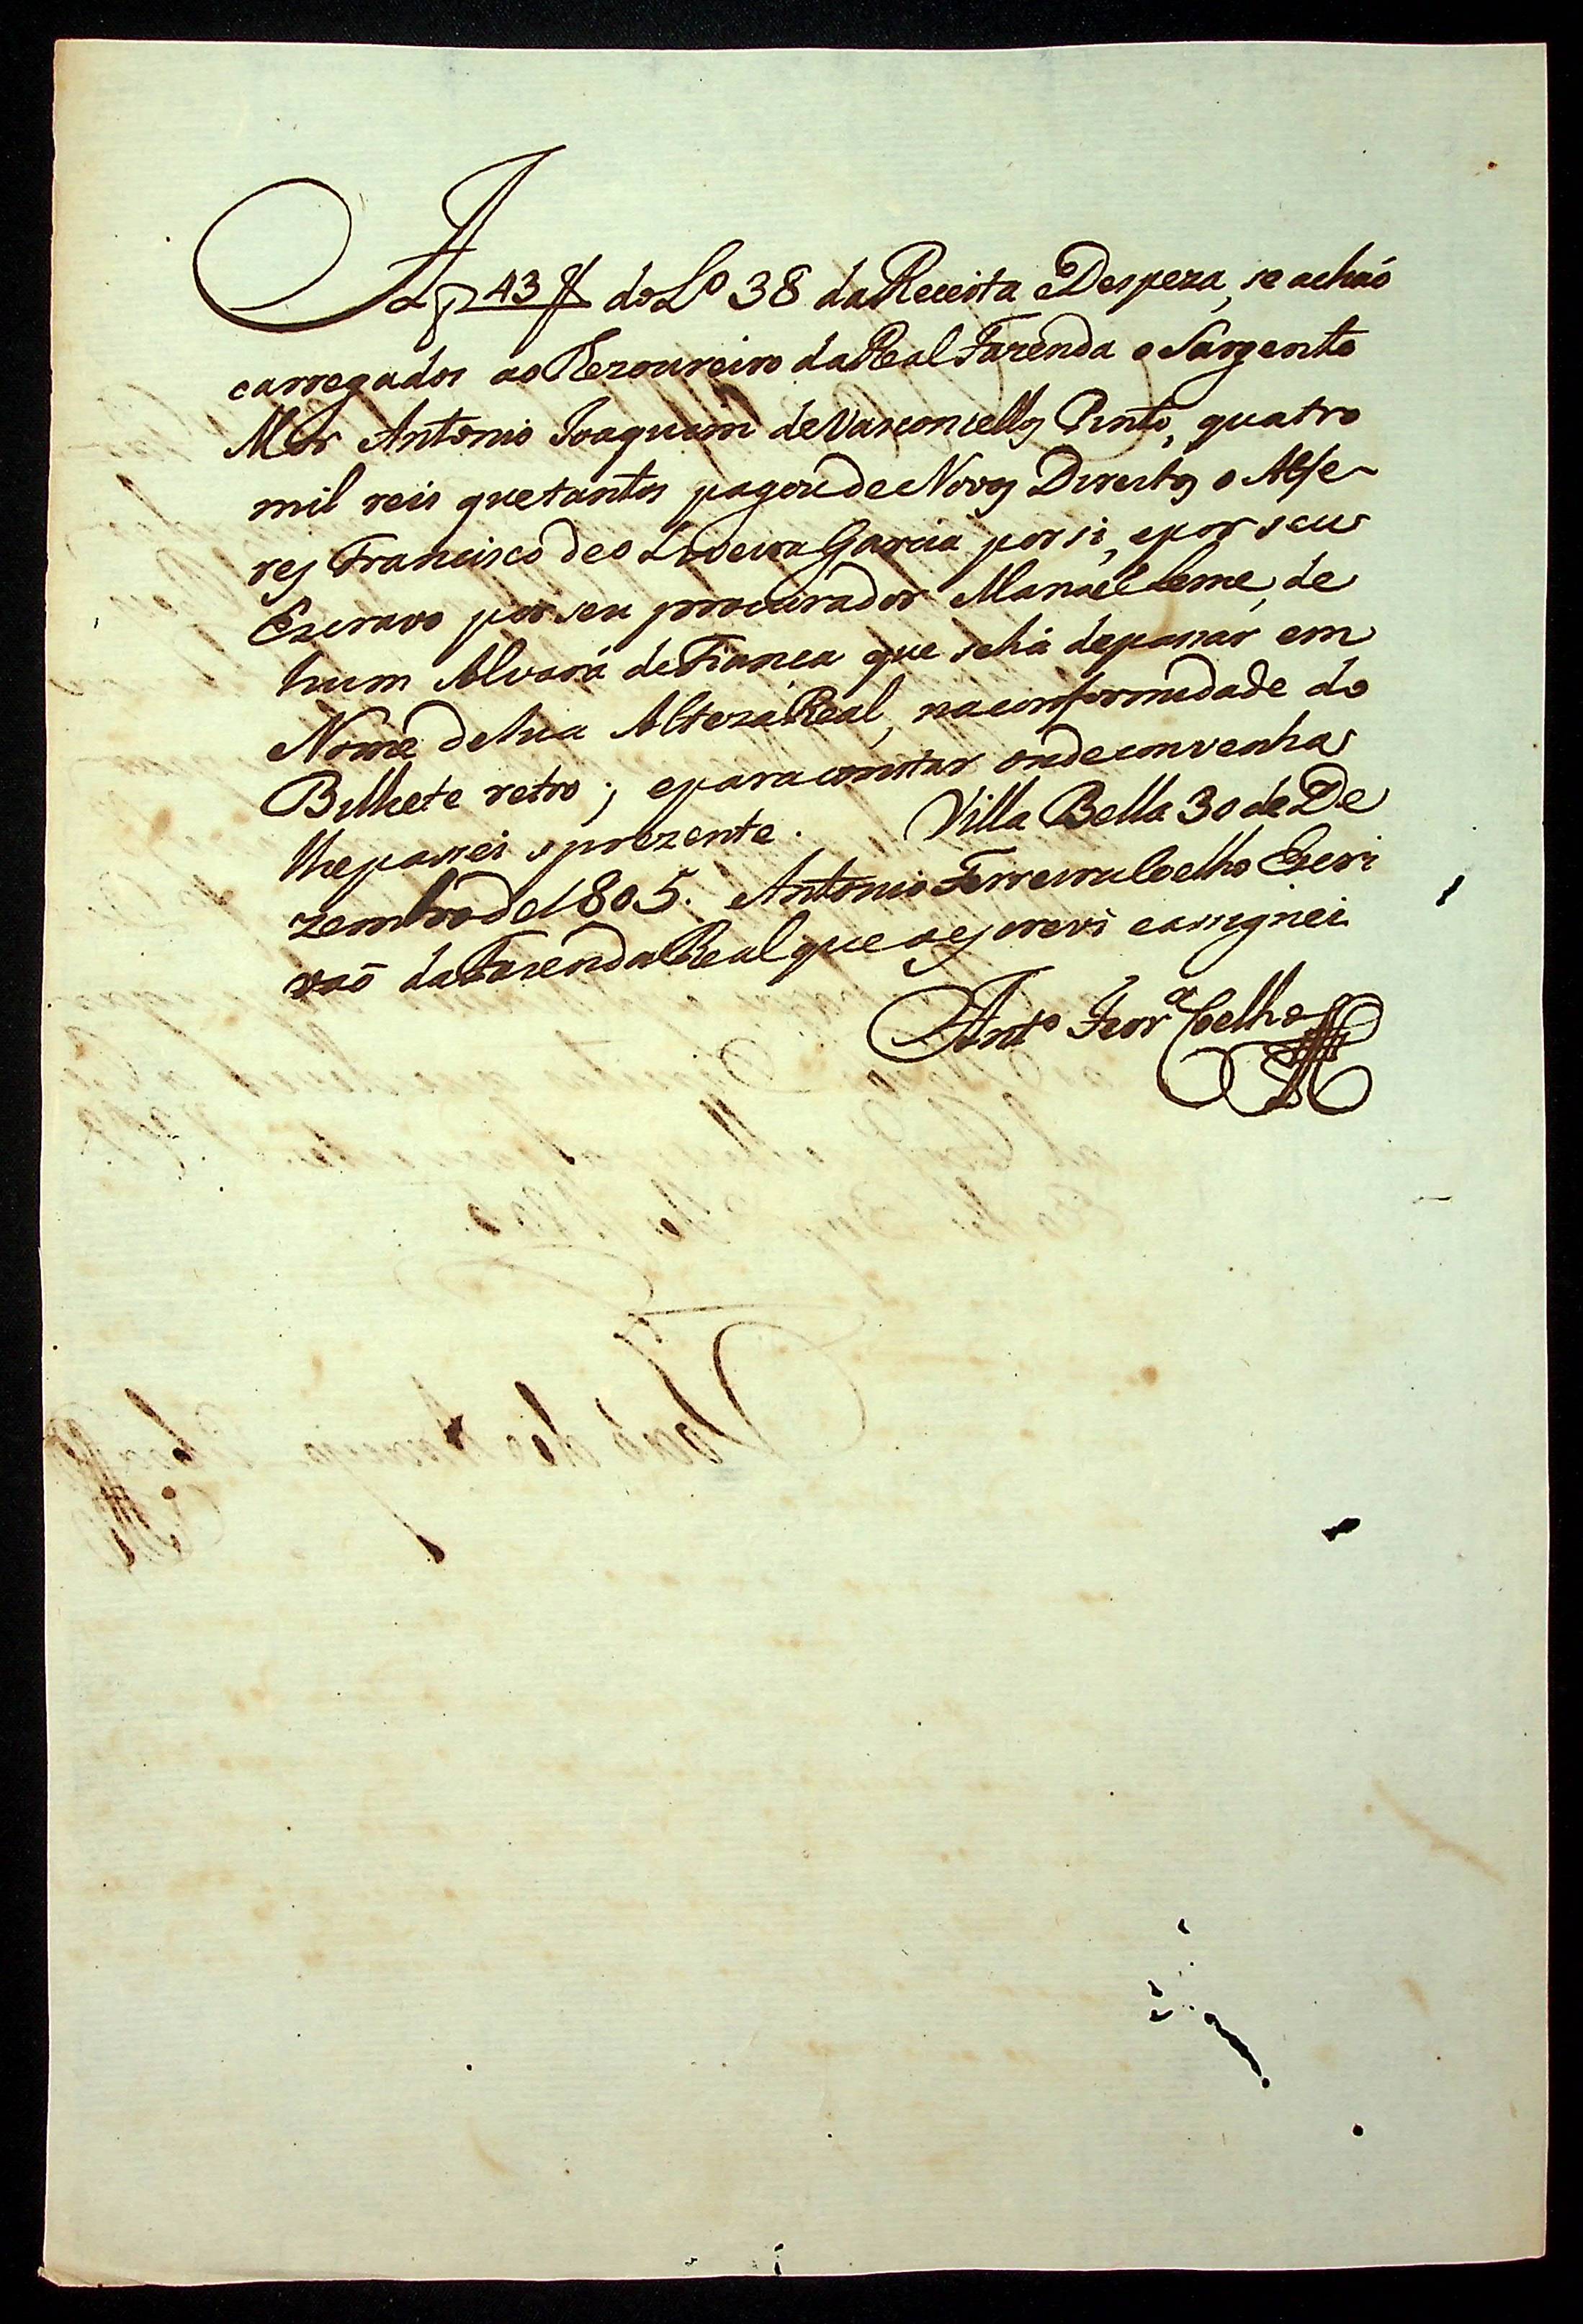 A f 43 do L.º 38 da Receita e Despeza, se achaõ
carregados ao Thezoureiro da Real Fazenda o Sargento
Mór Antonio Joaquim de Vasconcellos Pinto, quatro
mil reis que tantos pagou de Novos Direitos o Alfe-
res Francisco de Garcia por si, e por seu
Escravo por seu procurador Manoel Leme, de
hum Alvará de Fiança que se há de passar em
Nome de Sua Alteza Real, na conformidade do
Bilhete retro; e para constar onde convenha
lhe passei o prezente. Villa Bella 30 de De
zembro de 1805. Antonio Ferreira Coelho Escri
vaõ da Fazenda Real que o escrevi e assignei
Ant.º Ferr.ª Coelho